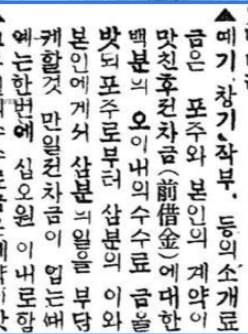 ▲예기、창기、작부、등의소개로
금은 포주와 본인의 계약이
맛친후전차금(前借金)에대한
백분의 오이내의수수료 금을
밧되포주로부터 삼분의 이와
본인에게서 삼분의일을 부담
케할것 만일전차금이 업는ᄯᅢ
에는한번에 십오원 이내로함